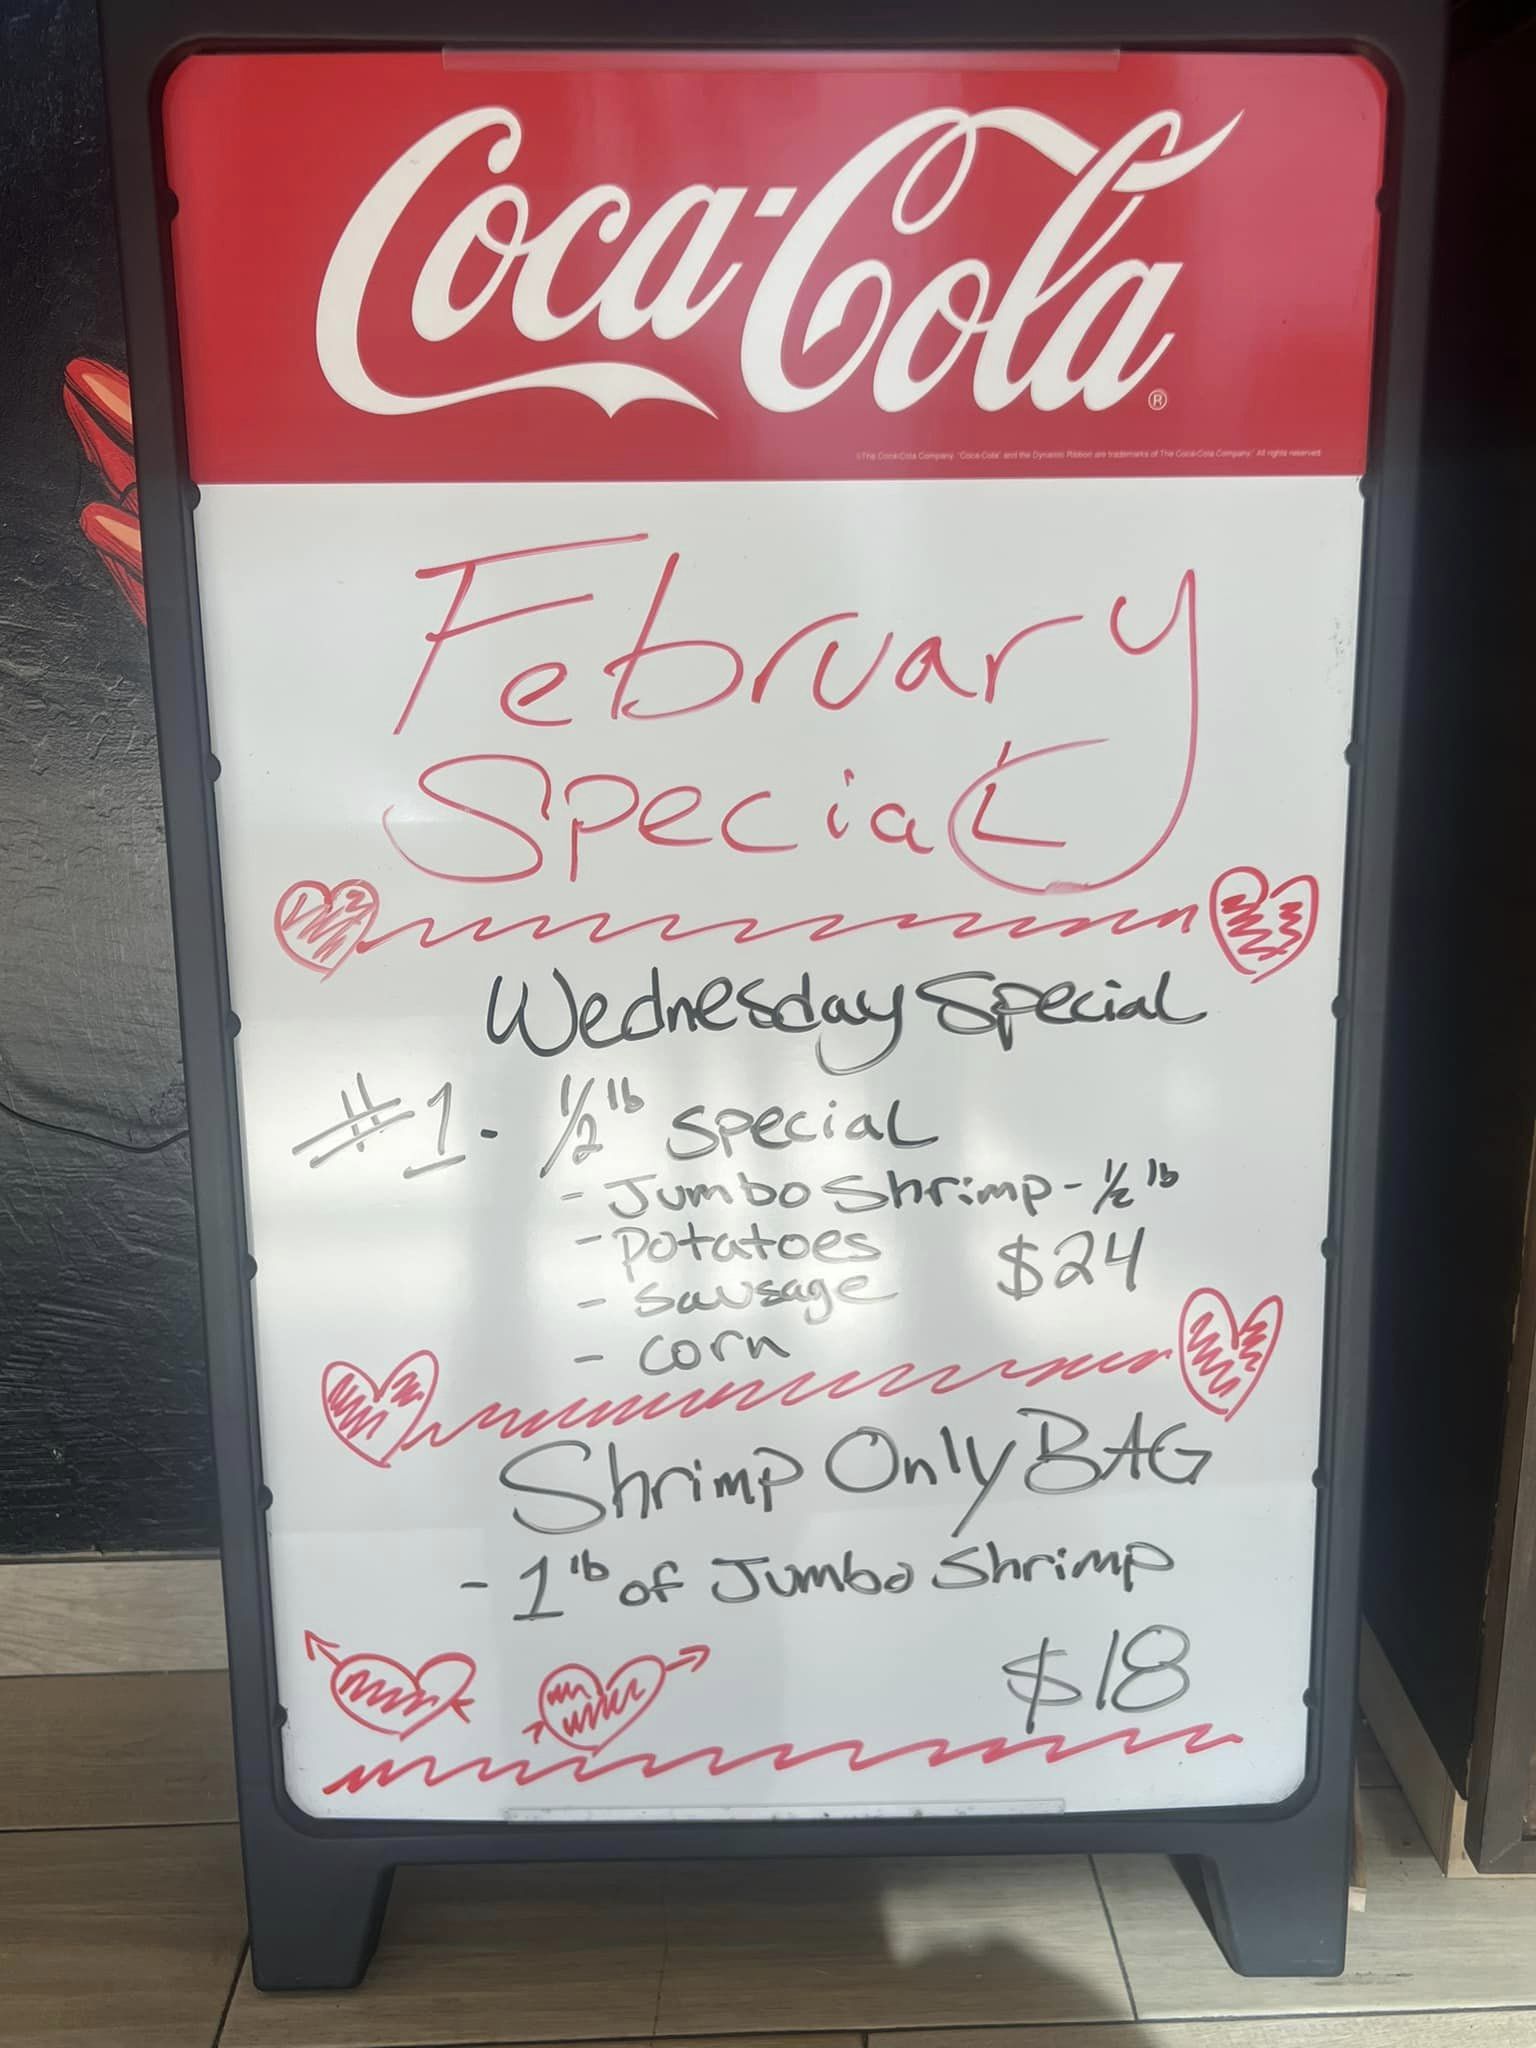 Coca-Cola
®
©The Coca-Cola Company. "Coca-Cola" and the Dynamic Ribbon are trademarks of The Coca-Cola Company. All rights reserved.
February
Special
Wednesday Special
#1 - 1/2 lb special
- Jumbo Shrimp - 1/2 lb
- potatoes $24
- sausage
- corn
Shrimp Only BAG
- 1 lb of Jumbo Shrimp
$18